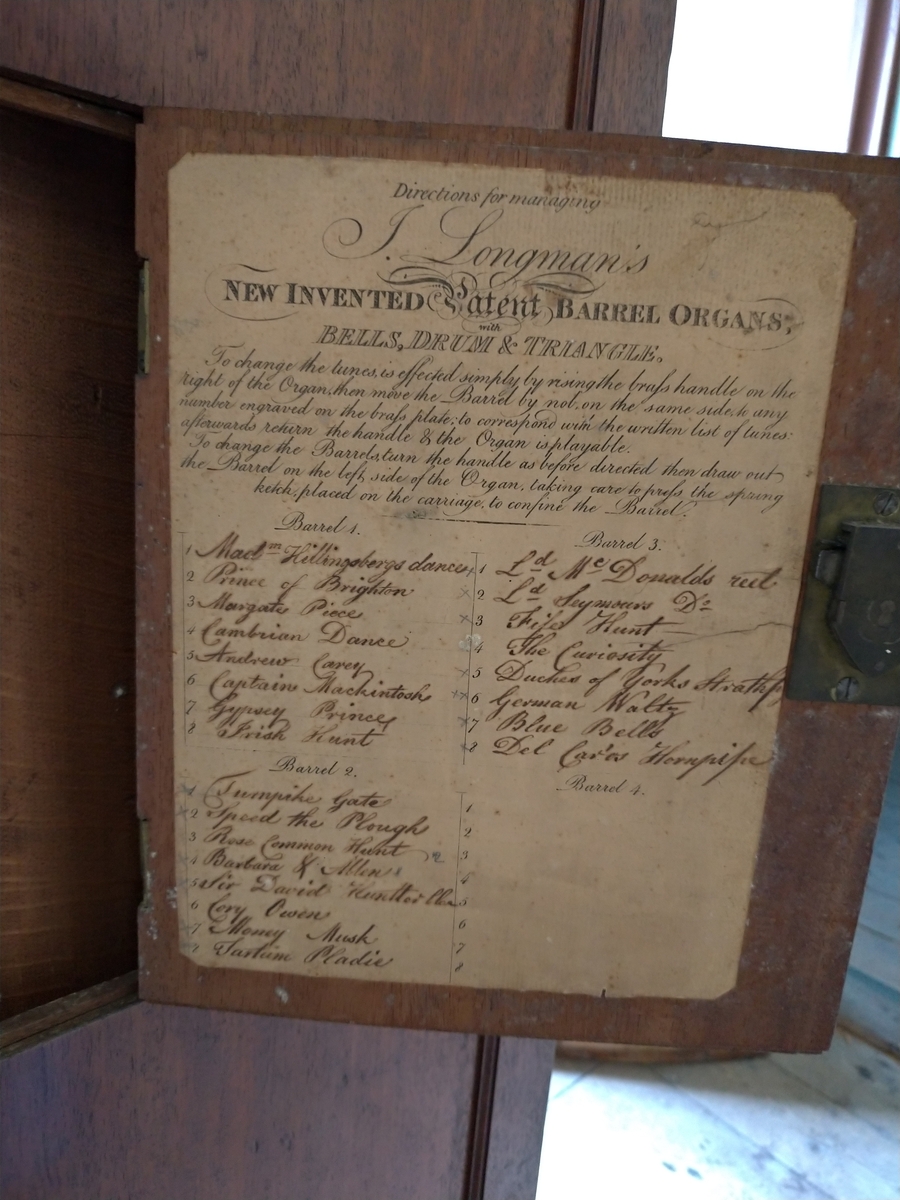 Directions for managing
J. Longman's
NEW INVENTED Patent BARREL ORGANS,
with
BELLS, DRUM & TRIANGLE.
To change the tunes, is effected simply by rising the braſs handle on the
right of the Organ, then move the Barrel by not, on the same side, to any
number engraved on the braſs plate; to correspond with the written list of tunes:
afterwards return the handle & the Organ is playable.
To change the Barrels, turn the handle as before directed then draw out
the Barrel on the left side of the Organ, taking care to preſs the spring
ketch, placed on the carriage, to confine the Barrel.
Barrel 1.
1 Madm Hillingsbergs dance
2 Prince of Brighton
3 Margate Piece
4 Cambrian Dance
5 Andrew Carey
6 Captain Mackintosh
7 Gypsey Prince
8 Irish Hunt
Barrel 2.
1 Turnpike Gate
2 Speed the Plough
3 Rose Common Hunt
4 Barbara & Allen
5 Sir David
6 Cory Owen
7 Money Musk
8 Tartum Pladie
Barrel 3.
1 Ld Mc Donalds reel
2 Ld Seymours Do
3 Fife Hunt
4 The Curiosity
5 Duches of Yorks
6 German Waltz
7 Blue Bells
8 Del Caros Hornpipe
Barrel 4.
1
2
3
4
5
6
7
8